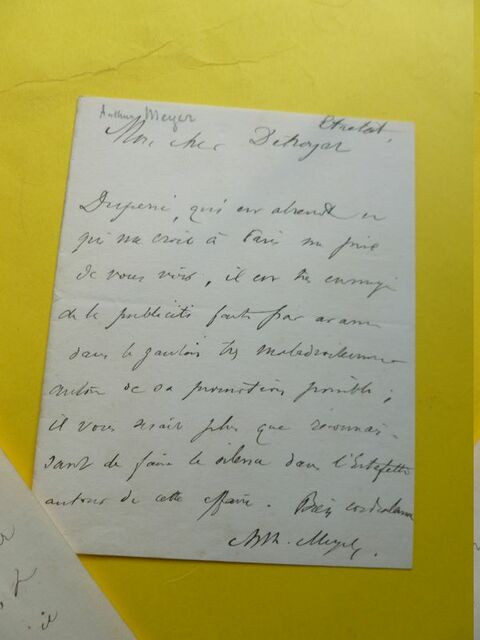 Arthur Meyer
Etretat.
Mon cher Détroyat
Duperré, qui est absent et
qui me croit à Paris me prie
de vous voir, il est très ennuyé
de la publicité faite par
dans le gaulois très maladroitement
autour de sa promotion possible ;
il vous serait plus que reconnais-
sant de faire le silence dans l'Estafette
autour de cette affaire. Bien cordialement
Meyer.